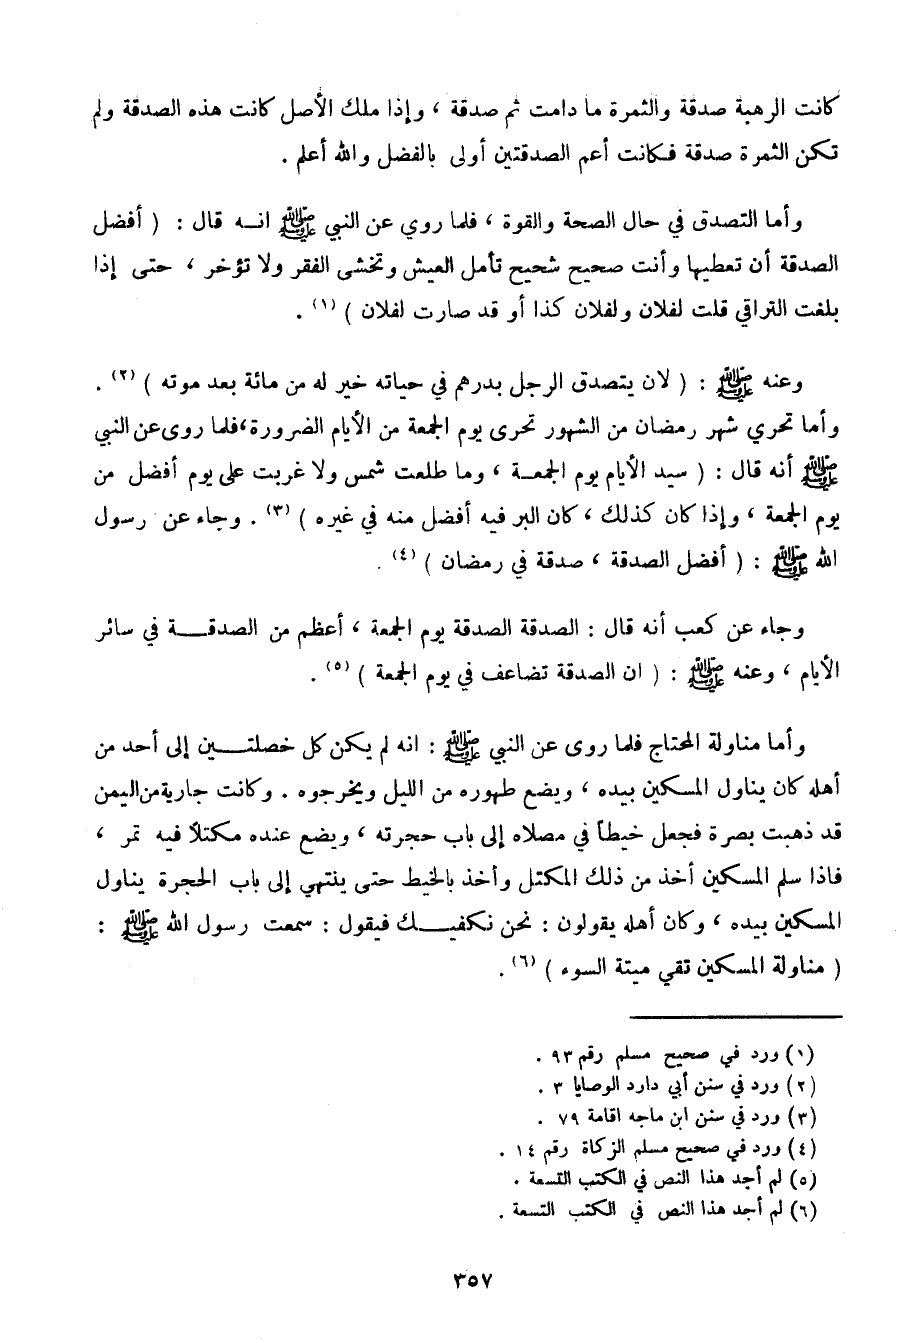 كانت الرهبة صدقة والثمرة ما دامت ثم صدقة ، وإذا ملك الأصل كانت هذه الصدقة ولم
تكن الثمرة صدقة فكانت أعم الصدقتين أولى بالفضل والله أعلم .
وأما التصدق في حال الصحة والقوة ، فلما روي عن النبي ﷺ انه قال : ( أفضل
الصدقة أن تعطيها وأنت صحيح شحيح تأمل العيش وتخشى الفقر ولا تؤخر ، حتى إذا
بلغت التراقي قلت لفلان ولفلان كذا أو قد صارت لفلان ) (١) .
وعنه ﷺ : ( لان يتصدق الرجل بدرهم في حياته خير له من مائة بعد موته ) (٢) .
وأما تحري شهر رمضان من الشهور تحرى يوم الجمعة من الأيام الضرورة،فلما روى عن النبي
ﷺ أنه قال : ( سيد الأيام يوم الجمعة ، وما طلعت شمس ولا غربت على يوم أفضل من
يوم الجمعة ، وإذا كان كذلك ، كان البر فيه أفضل منه في غيره ) (٣) . وجاء عن رسول
الله ﷺ : ( أفضل الصدقة ، صدقة في رمضان ) (٤) .
وجاء عن كعب أنه قال : الصدقة الصدقة يوم الجمعة ، أعظم من الصدقة في سائر
الأيام ، وعنه ﷺ : ( ان الصدقة تضاعف في يوم الجمعة ) (٥) .
وأما مناولة المحتاج فلما روى عن النبي ﷺ : انه لم يكن كل خصلتين إلى أحد من
أهله كان يناول المسكين بيده ، ويضع طهوره من الليل ويخرجوه . وكانت جارية من اليمن
قد ذهبت بصرة فجعل خيطاً في مصلاه إلى باب حجرته ، ويضع عنده مكتلاً فيه تمر ،
فاذا سلم المسكين أخذ من ذلك المكتل وأخذ بالخيط حتى ينتهي إلى باب الحجرة يناول
المسكين بيده ، وكان أهله يقولون : نحن نكفيك فيقول : سمعت رسول الله ﷺ :
( مناولة المسكين تقي ميتة السوء ) (٦) .
(١) ورد في صحيح مسلم رقم ٩٣ .
(٢) ورد في سنن أبي دارد الوصايا ٣ .
(٣) ورد في سنن ابن ماجه اقامة ٧٩ .
(٤) ورد في صحيح مسلم الزكاة رقم ١٤ .
(٥) لم أجد هذا النص في الكتب التسعة .
(٦) لم أجد هذا النص في الكتب التسعة .
٣٥٧